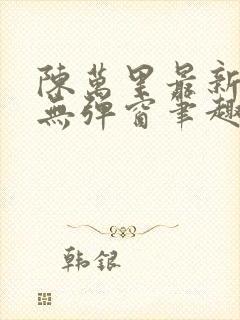 陳萬里最新
無彈窗筆趣
韩银